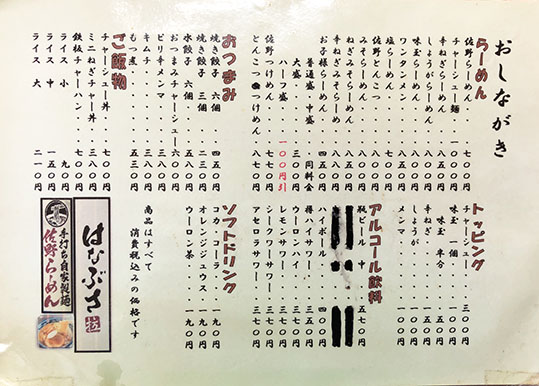 おしながき
らーめん
佐野らーめん・・・七〇〇円
チャーシュー麺
味玉らーめん
辛ねぎらーめん
しょうがらーめん
ワンタンメン
塩らーめん
佐野とんこつ
みそらーめん
ねぎみそらーめん
辛ねぎみそらーめん
お子様らーめん・・四五〇円
普通盛・中盛・同料金
大盛
ハーフ盛 一〇〇円引
佐野つけめん・・・七七〇円
とんこつつけめん・・八七〇円
おつまみ
焼き餃子 六個・・四五〇円
焼き餃子 三個・・二三〇円
水餃子 六個・・・五八〇円
おつまみチャーシュー六〇〇円
ピリ辛メンマ・・・三八〇円
キムチ・・・・・・三八〇円
もつ煮・・・・・・五三〇円
ご飯物
チャーシュー丼・・七〇〇円
ミニねぎチャー丼・三八〇円
鉄板チャーハン・・七〇〇円
ライス 小・・・・九〇円
ライス 中・・・一五〇円
ライス 大・・・二一〇円
トッピング
チャーシュー・・三〇〇円
味玉 一個・・一〇〇円
味玉 半分
辛ねぎ・・・・一五〇円
しょうが・・・一〇〇円
メンマ・・・・一〇〇円
アルコール飲料
瓶ビール 中・・五七〇円
ハイボール・・・四〇〇円
樽ハイ・・・・・三五〇円
ウーロンハイ・・三七〇円
レモンサワー・・三七〇円
シークワーサーサワー・三七〇円
アセロラサワー・・三七〇円
ソフトドリンク
コカ・コーラ・・・一九〇円
オレンジジュウス・一九〇円
ウーロン茶・・・・一九〇円
商品はすべて
消費税込みの価格です
はやぶさ
手打ち自家製麺
佐野らーめん